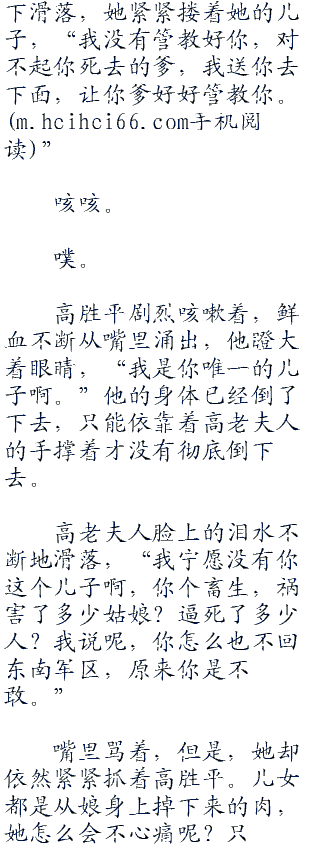 下滑落，她紧紧搂着她的儿
子，“我没有管教好你，对
不起你死去的爹，我送你去
下面，让你爹好好管教你。
(m.hcihci66.com手机阅
读)”
咳咳。
噗。
高胜平剧烈咳嗽着，鲜
血不断从嘴里涌出，他瞪大
着眼睛，“我是你唯一的儿
子啊。”他的身体已经倒了
下去，只能依靠着高老夫人
的手撑着才没有彻底倒下
去。
高老夫人脸上的泪水不
断地滑落，“我宁愿没有你
这个儿子啊，你个畜生，祸
害了多少姑娘？逼死了多少
人？我说呢，你怎么也不回
东南军区，原来你是不
敢。”
嘴里骂着，但是，她却
依然紧紧抓着高胜平。儿女
都是从娘身上掉下来的肉，
她怎么会不心痛呢？只